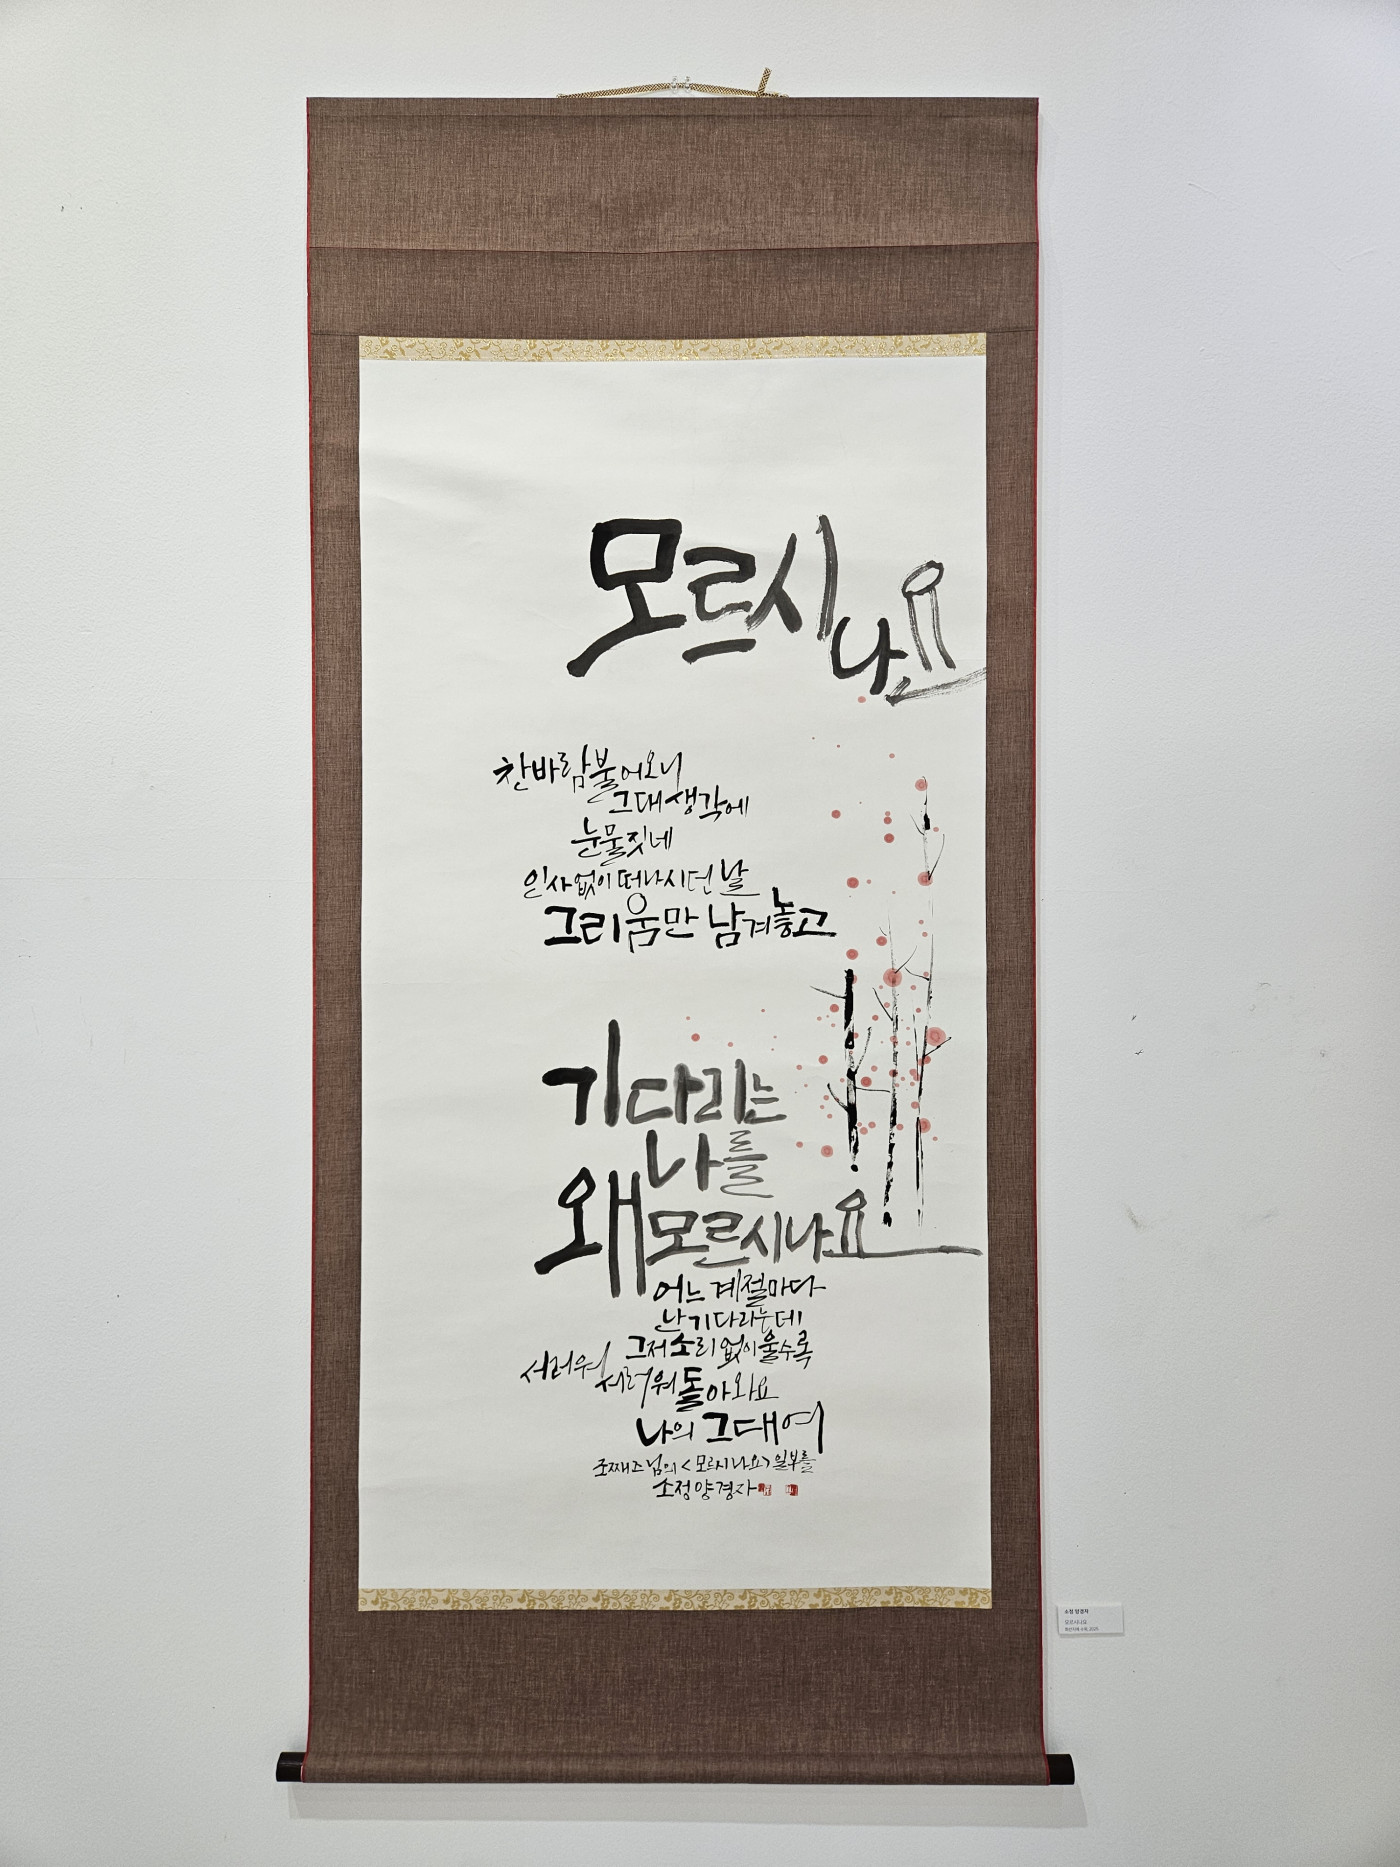 모르시나요
찬바람 불어오니
그대 생각에
눈물짓네
인사없이 떠나시던 날
그리움만 남겨놓고
기다리는
나를
왜 모르시나요
어느 계절마다
난 기다리는데
그저 소리 없이 울수록
서러워
서러워 돌아와요
나의 그대여
조째즈님의 <모르시나요> 일부를
소정 양경자
소정 양경자
모르시나요